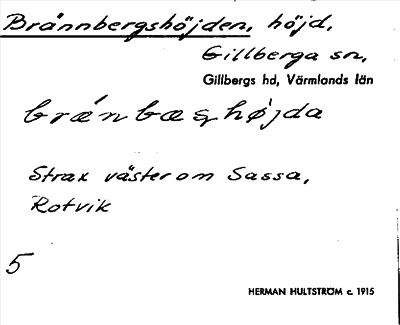 Brännbergshöjden, höjd,
Gillberga sn,
Gillbergs hd, Värmlands län
bræ´nbæshø̀jda
Strax väster om Sassa,
Rotvik
5
HERMAN HULTSTRÖM c. 1915